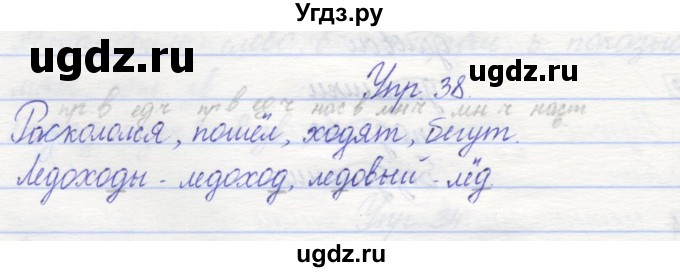 Угдз.ру
ugdz.ru
ugdz.ru
Упр. 38.
пр в ед ч пр в ед ч нас в мн ч мн ч наст
Раскололся, пошёл, ходят, бегут.
Ледоходы - ледоход, ледовый - лёд.
ugdz.ru
ugdz.ru